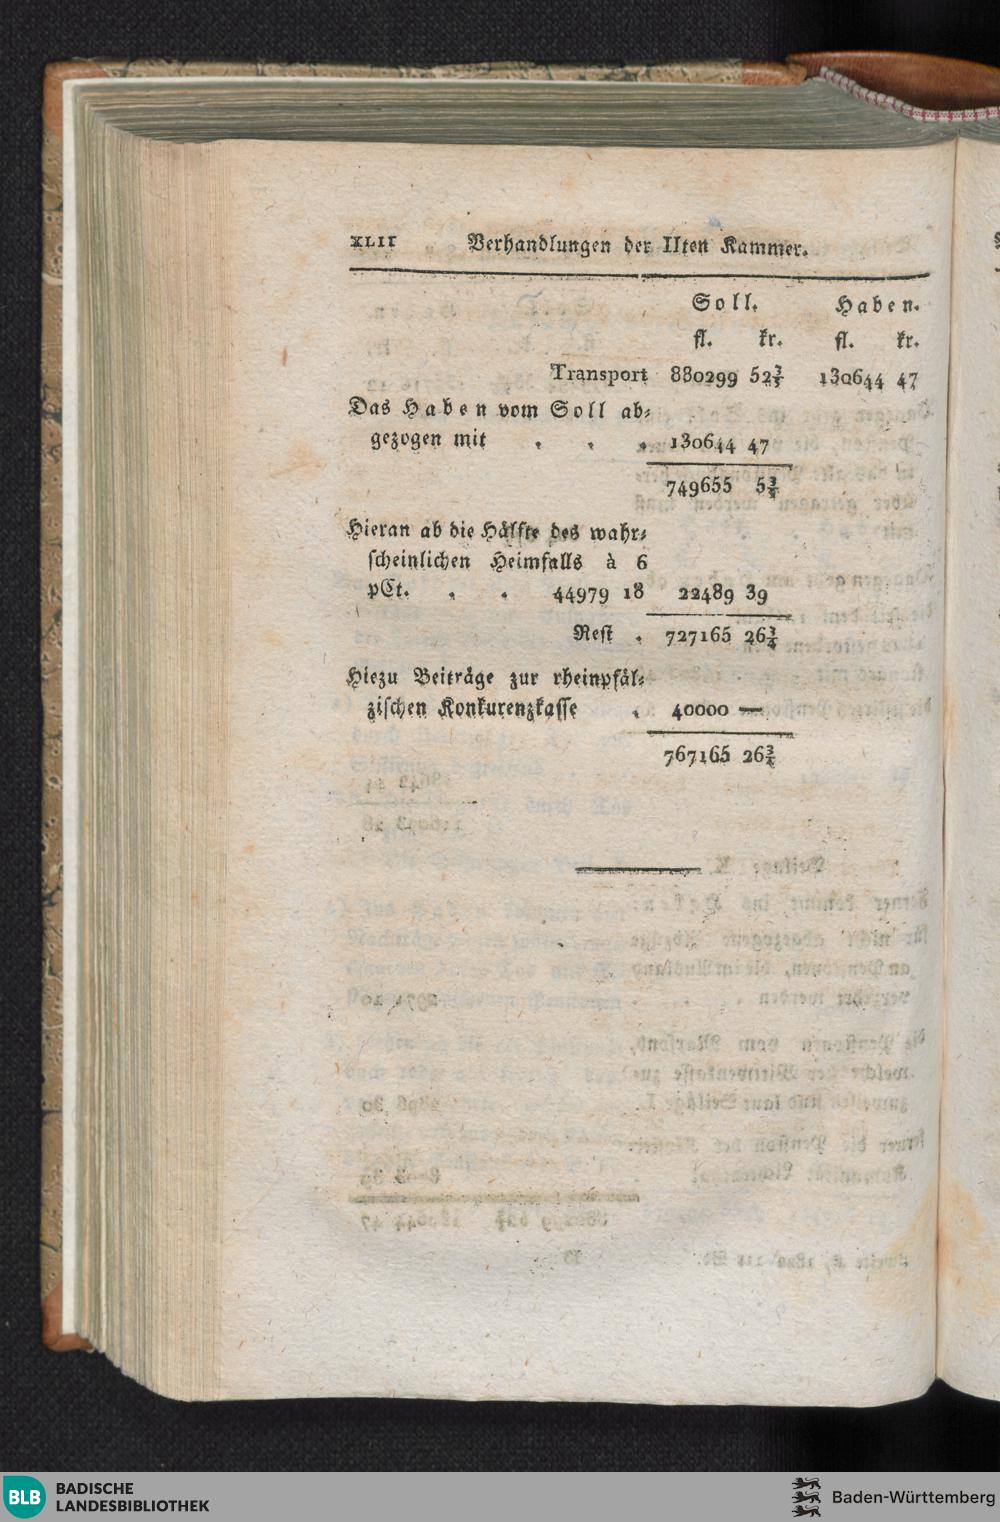 XLII Verhandlungen der IIten Kammer.
Soll. Haben.
fl. kr. fl. kr.
Transport 880299 52¾ 130644 47
Das Haben vom Soll ab-
gezogen mit . . . 130644 47
749655 5¾
Hieran ab die Hälfte des wahr-
scheinlichen Heimfalls à 6
pCt. . . 44979 18 22489 39
Rest . 727165 26¾
Hiezu Beiträge zur rheinpfäl-
zischen Konkurenzkasse . 40000 —
767165 26¾
BLB BADISCHE
LANDESBIBLIOTHEK
Baden-Württemberg